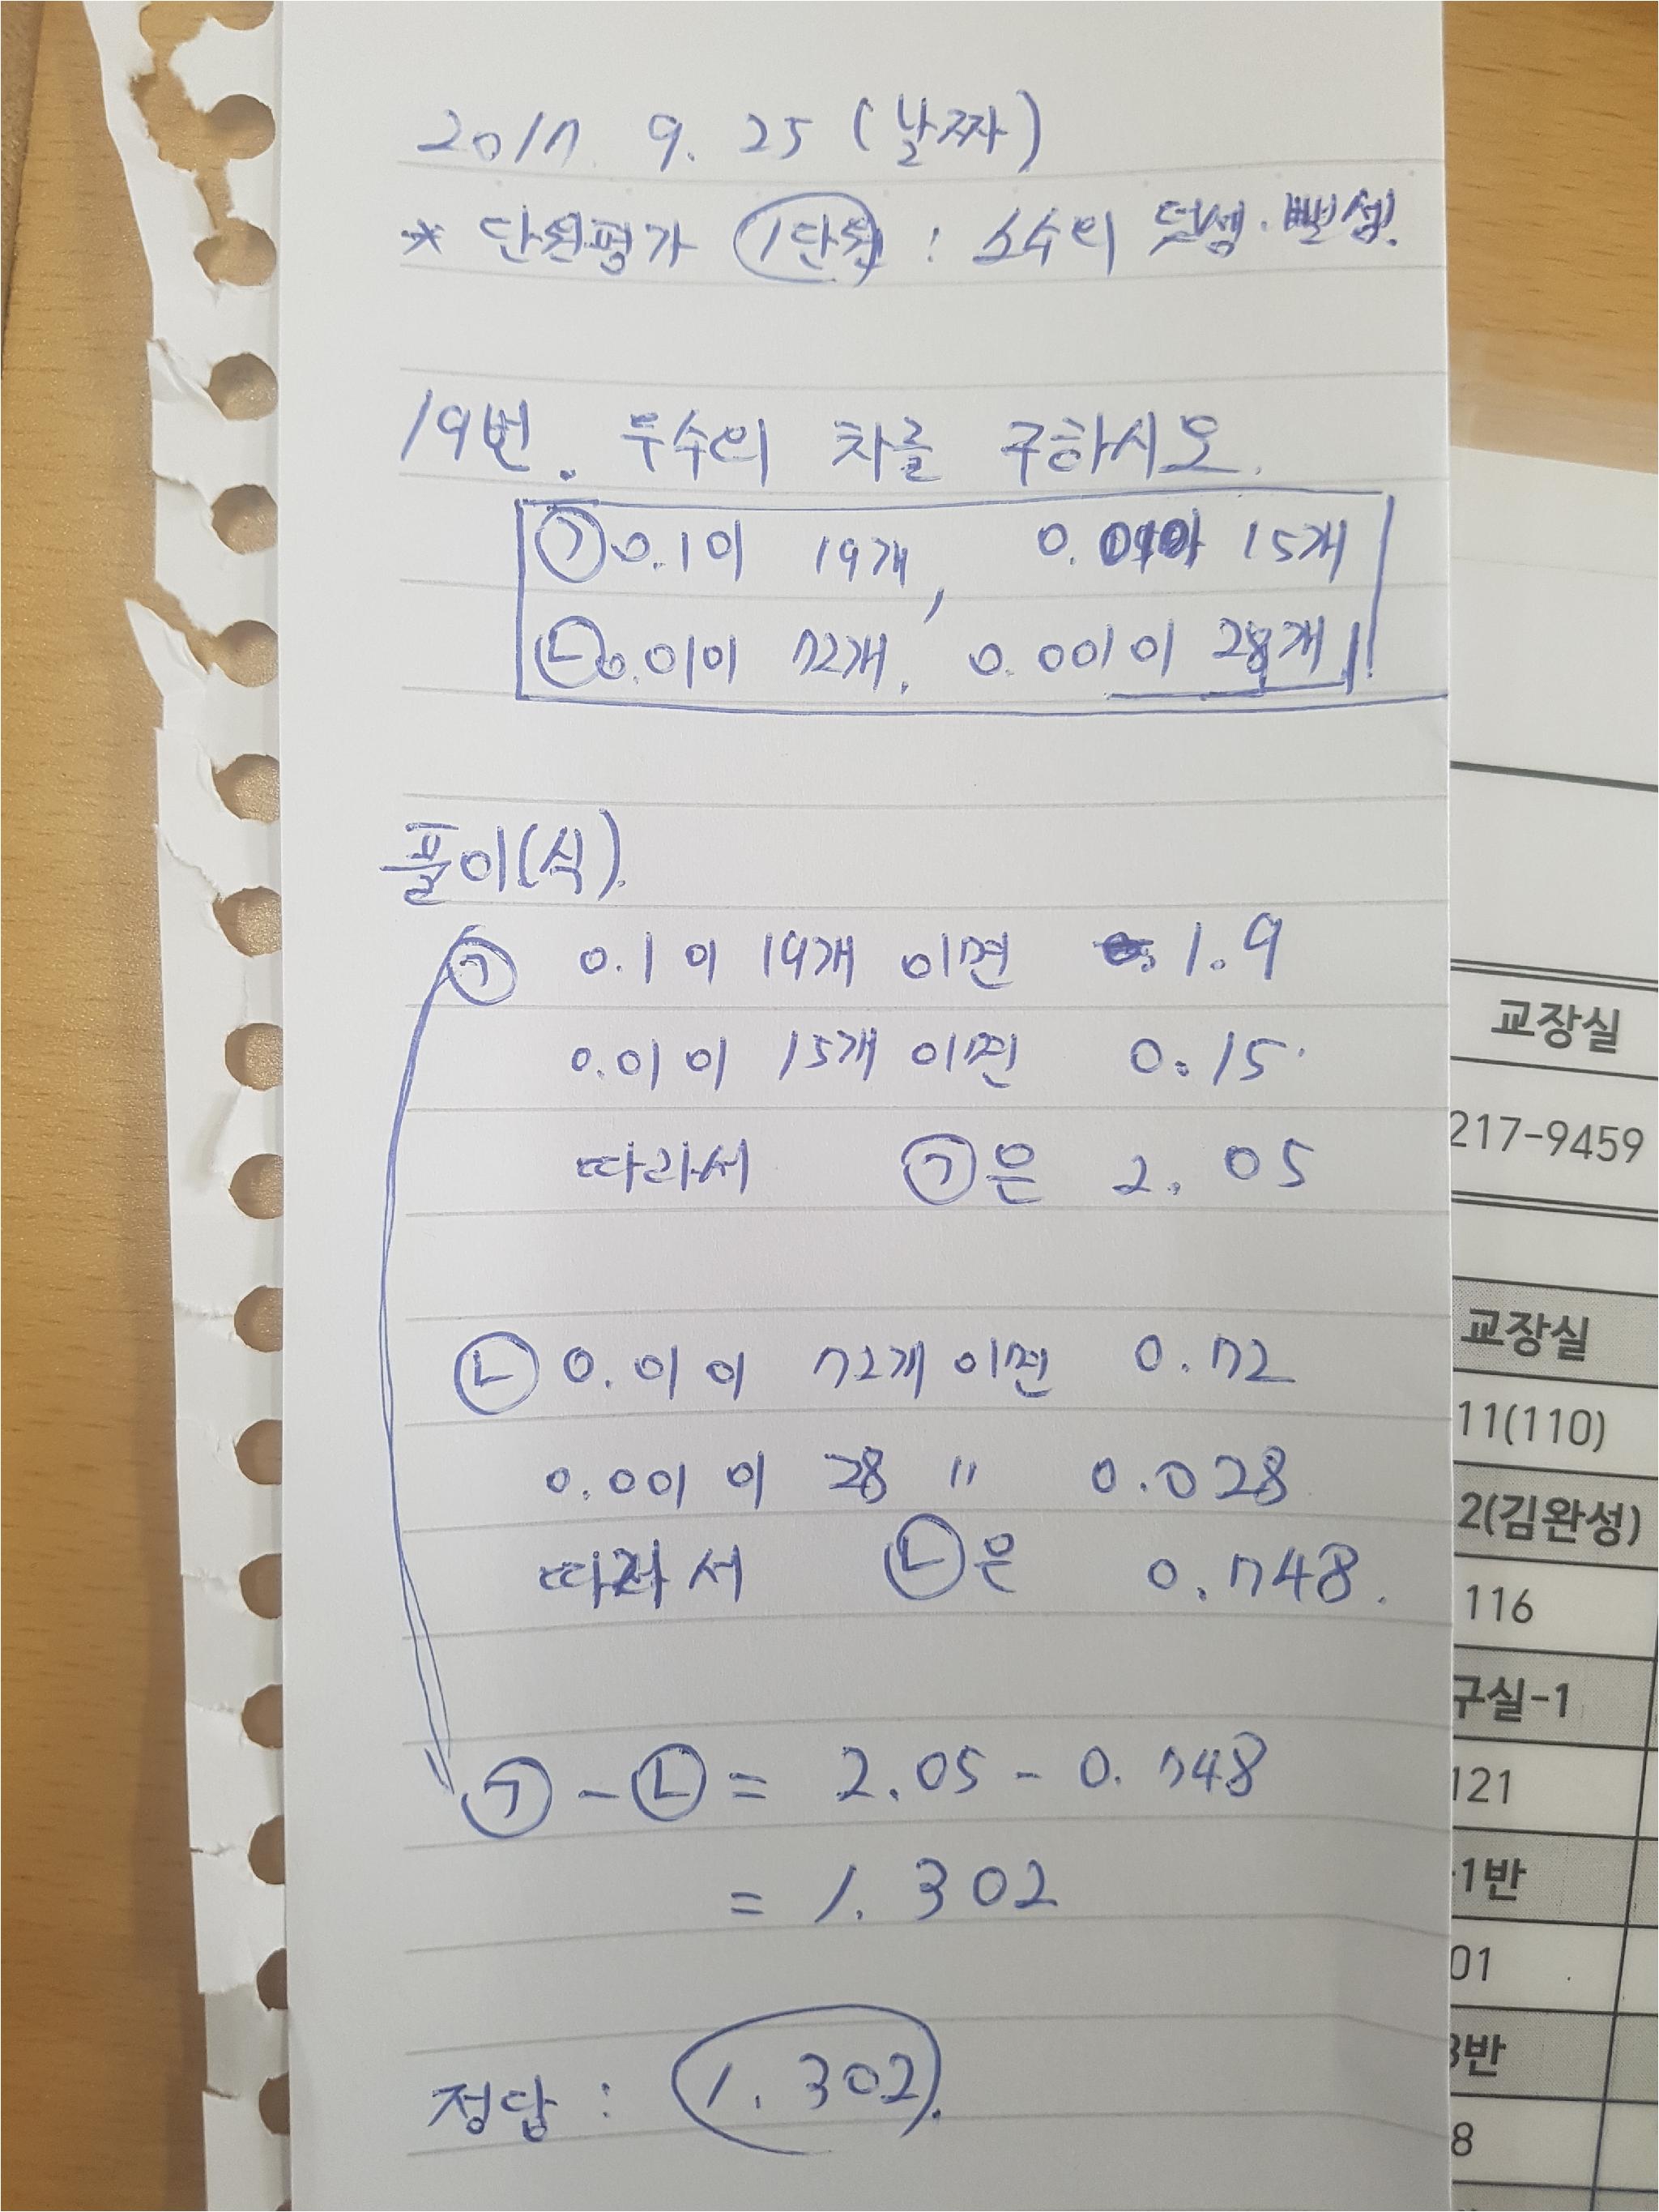 2017. 9. 25 (날짜)
* 단원평가 1단원 : 소수의 덧셈·뺄셈.
19번. 두수의 차를 구하시오.
㉠ 0.1이 19개, 0.01이 15개
㉡ 0.01이 72개, 0.001이 28개
풀이(식).
㉠ 0.1이 19개 이면 1.9
0.01이 15개 이면 0.15
따라서 ㉠은 2.05
㉡ 0.01이 72개 이면 0.72
0.001이 28 〃 0.028
따라서 ㉡은 0.748.
㉠ - ㉡ = 2.05 - 0.748
= 1.302
정답 : 1.302.
교장실
217-9459
교장실
11(110)
2(김완성)
116
구실-1
121
1반
01
3반
8